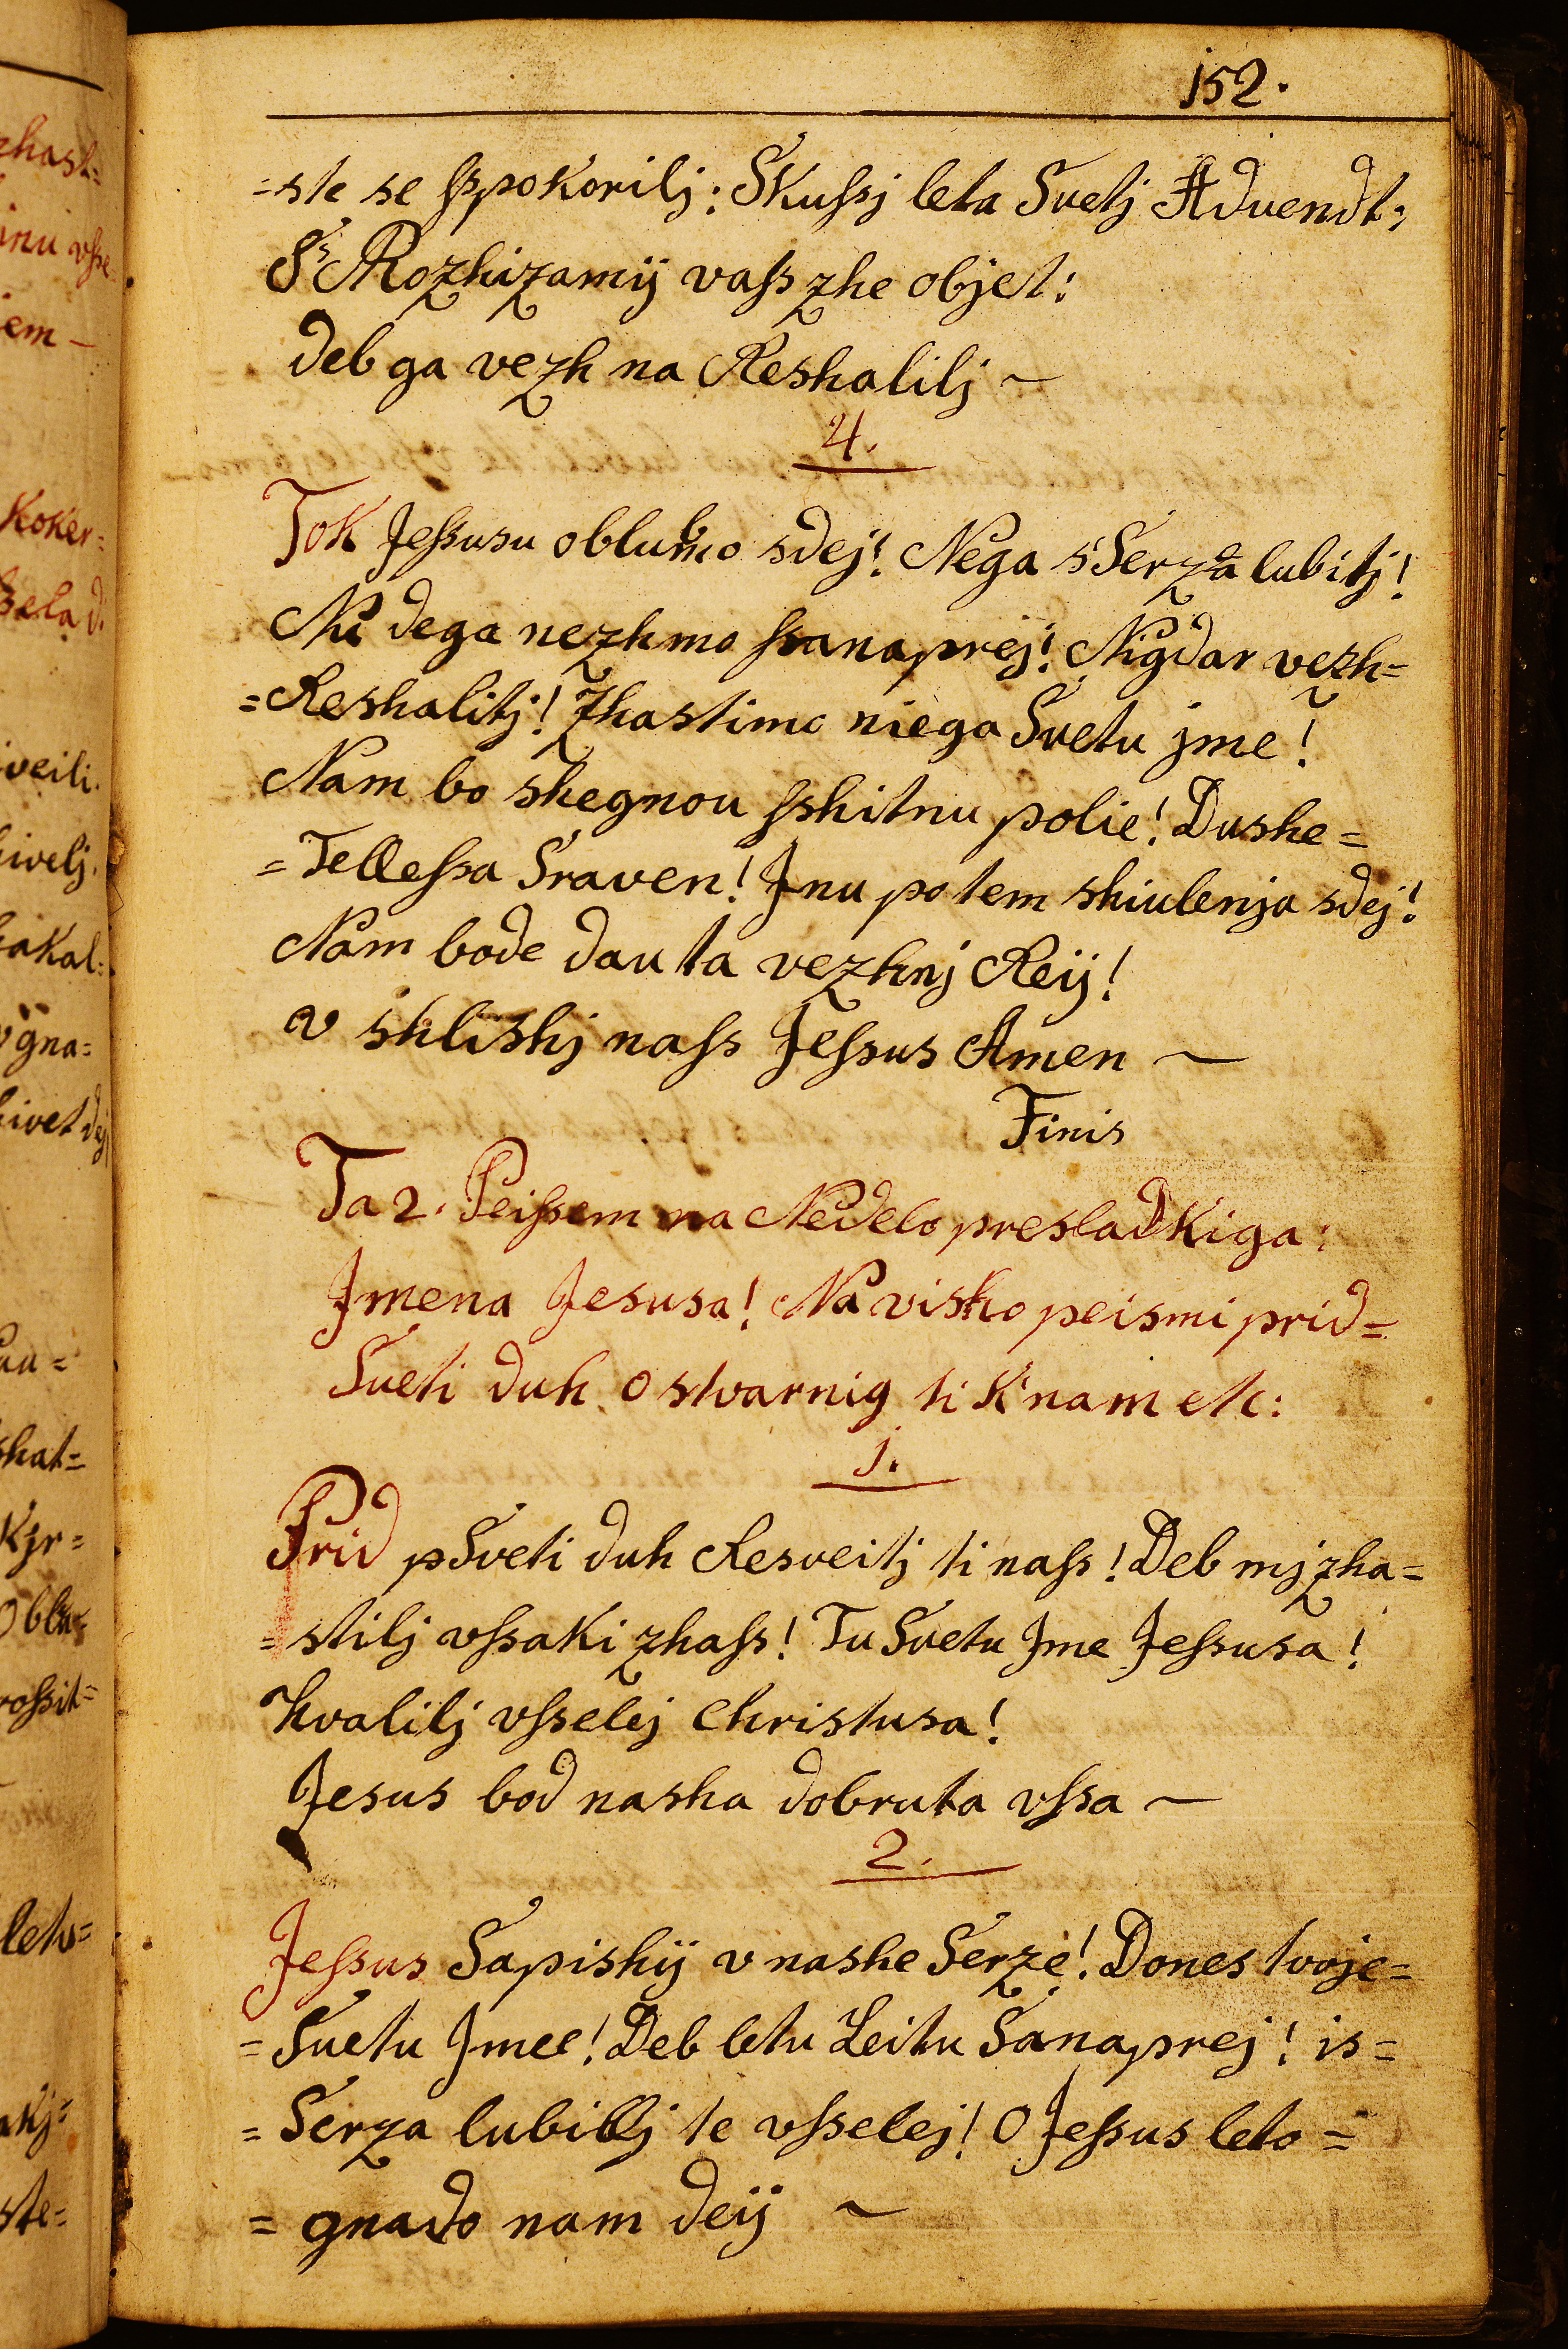 152.
=ste se sspokorilj: Skussj leta Svetj Advendt;
S' Rozhizamij vass zhe objet:
deb ga vezh na Reshalilj ~
4.
Tok Jessusu oblubmo sdej! Nega s'Serza lubitj!
Nu dega nezhmo sanaprej! Nigdar vezh=
=Reshalitj! Zhastimo niega Svetu jme!
Nam bo shegnou sshitnu polie! Dushe=
=Tellessa Sraven! Jnu potem shiulenja sdej!
Nam bode dau ta vezhnj Reij!
v shlishj nass Jessus Amen ~
Finis
Ta 2. Peissem na Nedelo presladkiga:
Jmena Jesusa! Na visho peismi prid=
Sveti duh O stvarnig ti k'nam etc:
1.
Prid pSveti duh Resveitj ti nass! Deb mj zha=
=stilj vssaki zhass! Tu Svetu Jme Jessusa!
Hvalilj vsselej Christusa!
Jesus bod nasha dobruta vssa ~
2.
Jessus Sapishij v nashe Serze! Dones tvoje=
=Svetu Jmee! Deb letu Leitu Sanaprej! is=
=Serza lubillj te vsselej! O Jessus leto=
=gnado nam deij ~
zhast=
jnu vsse=
jem –
koker=
sela d.
veili.
ivelj.
akal=
gna=
ivet dej
au=
shat=
kjr=
Oblu=
rossit=
leto=
akj=
ste=